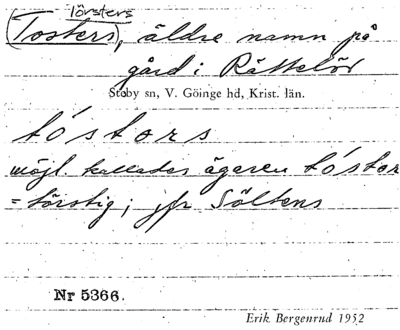 törsters
(Tosters), äldre namn på
gård i Rättelöv
Stoby sn, V. Göinge hd, Krist. län.
tóstors
möjl. kallades ägaren tóstor
= törstig; jfr Söltens
Nr 5366.
Erik Bergenrud 1952